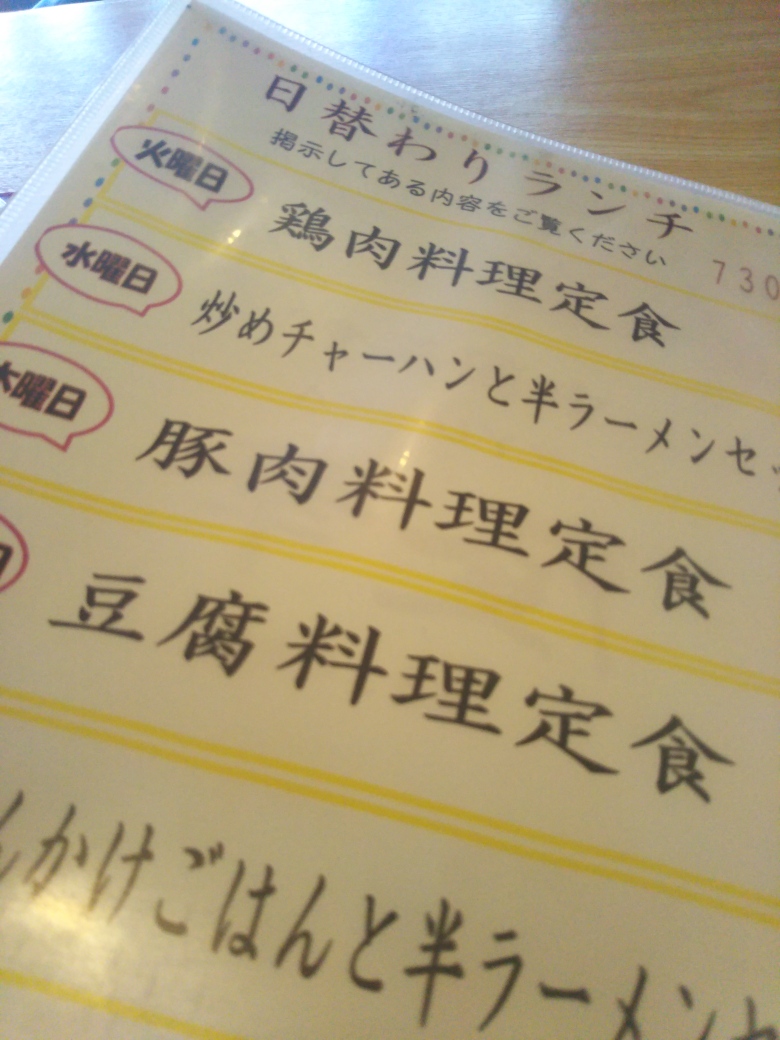 日替わりランチ
掲示してある内容をご覧ください
730
火曜日
鶏肉料理定食
水曜日
炒めチャーハンと半ラーメンセ
木曜日
豚肉料理定食
豆腐料理定食
んかけごはんと半ラーメンセ